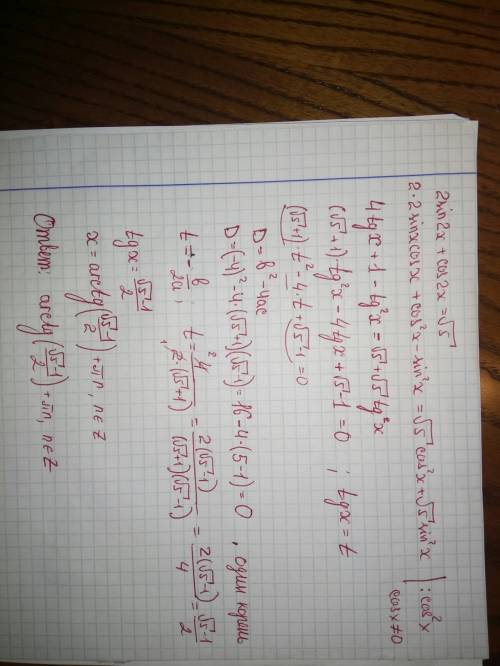 2sin2x + cos2x = √5
2·2sinxcosx + cos²x - sin²x = √5cos²x + √5sin²x | : cos²x
cosx≠0
4tgx + 1 - tg²x = √5 + √5tg²x
(√5+1)·tg²x - 4tgx + √5-1 = 0 ; tgx = t
(√5+1)t² - 4t + √5-1 = 0
D = b² - 4ac
D = (-4)² - 4·(√5+1)(√5-1) = 16 - 4·(5-1) = 0, один корень
t = -b/2a, t = 4/2·(√5+1) = 2(√5-1)/(√5+1)(√5-1) = 2(√5-1)/4 = √5-1/2
tgx = √5-1/2
x = arctg(√5-1/2) + πn, n∈Z
Ответ: arctg(√5-1/2) + πn, n∈Z